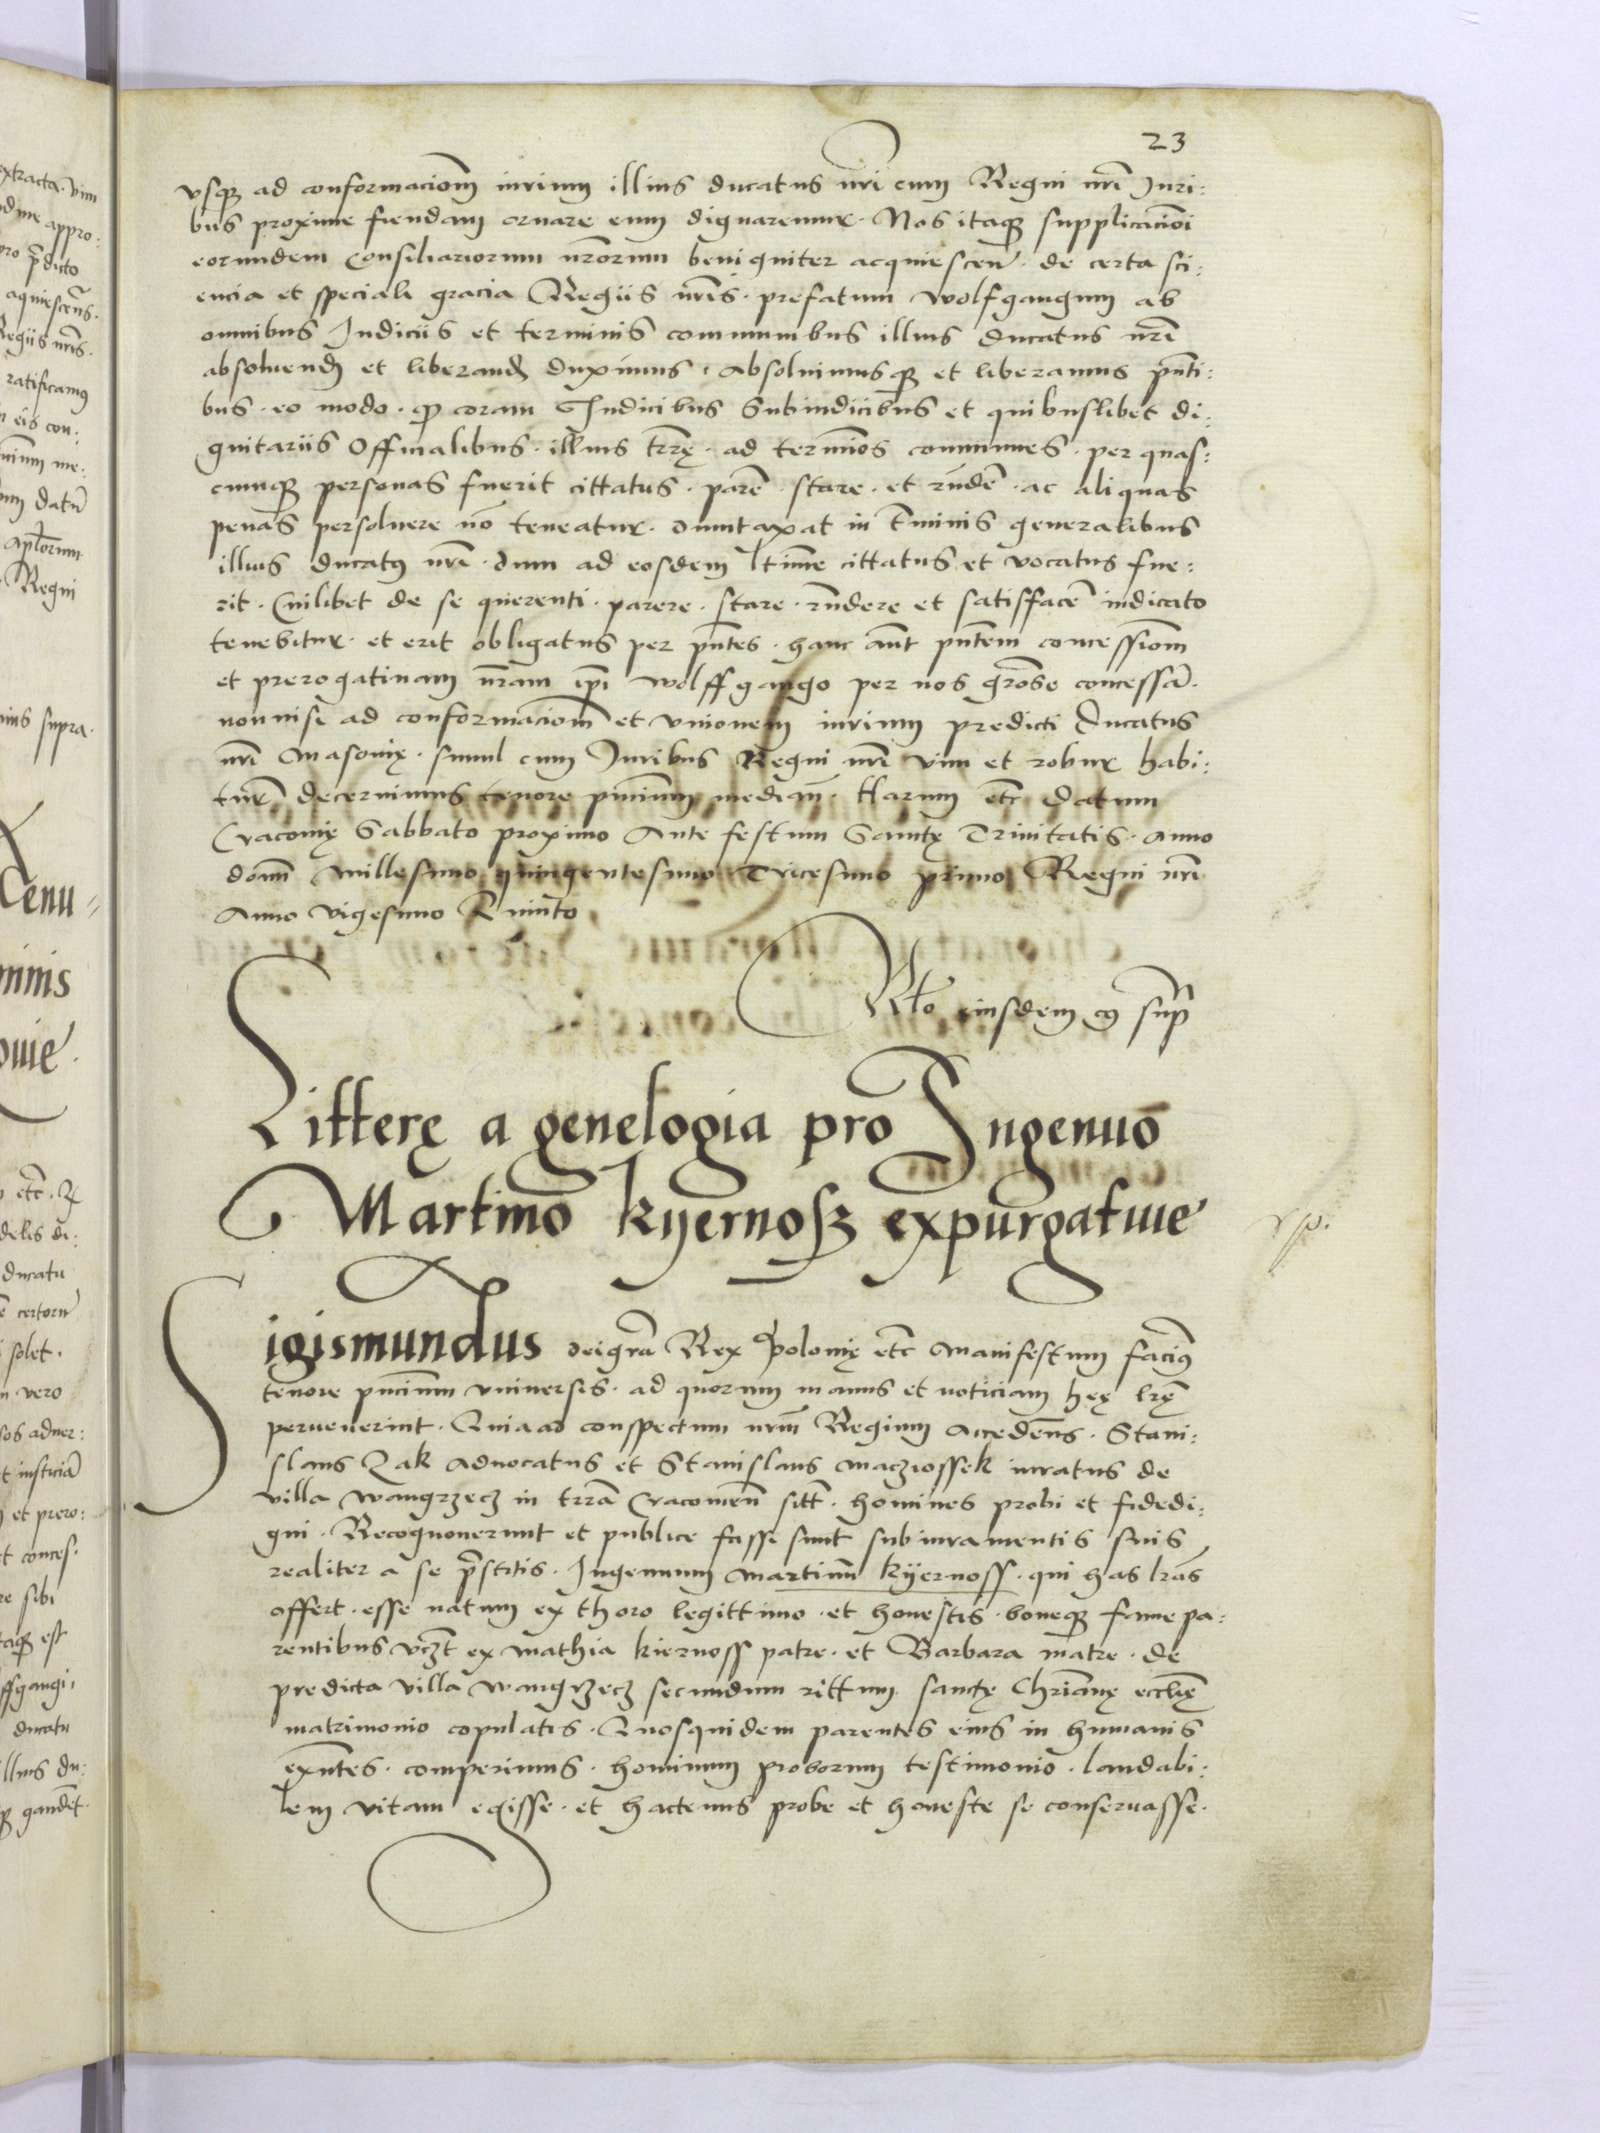 23
vsq₃ ad conformacioñ iurium illius ducatus nr̃i cum Regni nr̃i Juri:
bus proxime fiendam ornare eum dignaremur. Nos itaq₃ supplicacioñi
eorundem Consiliariorum nr̃orum benigniter acquiescen̄. de certa sci:
encia et speciali gracia Regiis nr̃is. prefatum Wolfgangum ab
omnibus Judiciis et terminis communibus illius ducatus nr̃i
absoluend̄ et liberand̄ duximus. Absoluimusq₃ et liberamus pn̄ti:
bus. eo modo. q₃ coram Judicibus Subiudicibus et quibuslibet di:
gnitariis Officialibus. illius tr̃rę. ad termĩos communes. per quas:
cumq₃ personas fuerit cittatus. parẽ. stare. et rñdẽ. ac aliquas
penas persoluere nō teneatur. dumtaxat in t̃minis generalibus
illius ducatus nr̃i. dum ad eosdem ltime cittatus et vocatus fue:
rit. Cuilibet de se querenti. parere. stare. rñdere et satisfacẽ iudicato
tenebitur. et erit obligatus per pñtes. hanc aũt pñtem concessioñ
et prerogatiuam nr̃am ip̃i Wolffgango per nos gr̃ose concessã.
nonnisi ad conformacioñ et vnionem iurium predicti ducatus
nr̃i Masouię. simul cum Juribus Regni nr̃i vim et robur habi:
turã decernimus tenore pñcium median̄. Harum etc̃ datum
Cracouię Sabbato proximo Ante festum Sanctę Trinitatis. Anno
domĩ Millesimo quingentesimo Tricesimo primo Regni nr̃i
Anno vigesimo Quinto
Rl̃o eiusdem cuꝰ supr̃
Litterę a genelogia pro Ingenuo
Martino kyernosz expurgatiue
Sigismundus dei gr̃a Rex Polonię etc̃ Manifestum facimꝰ
tenore pñcium vniuersis. ad quorum manus et noticiam hęę lr̃ę
peruenerint. Quia ad conspectum nr̃um Regium Accedens. Stani:
slaus Zak Aduocatus et Stanislaus Macziossek iuratus de
villa Wangrzecz in tr̃ra Cracouieñ sitt̃. homines probi et fidedi:
gni. Recognouerunt et publice fassi sunt sub iuramentis suis
realiter a se pr̃stitis. Ingenuum Martinũ kyernoss. qui has lr̃as
offert. esse natum ex thoro legittimo. et honestis. boneq₃ fame pa:
rentibus vcz̃t ex Mathia kiernoss patre. et Barbara matre. de
predicta villa Wangrzecz secundum rittum sanctę Chr̃ianę eccl̃ię
matrimonio copulatis. Quosquidem parentes eius in humanis
exñtes. comperimus. hominum proborum testimonio. laudabi:
lem vitam egisse. et hactenus probe et honeste se conseruasse.